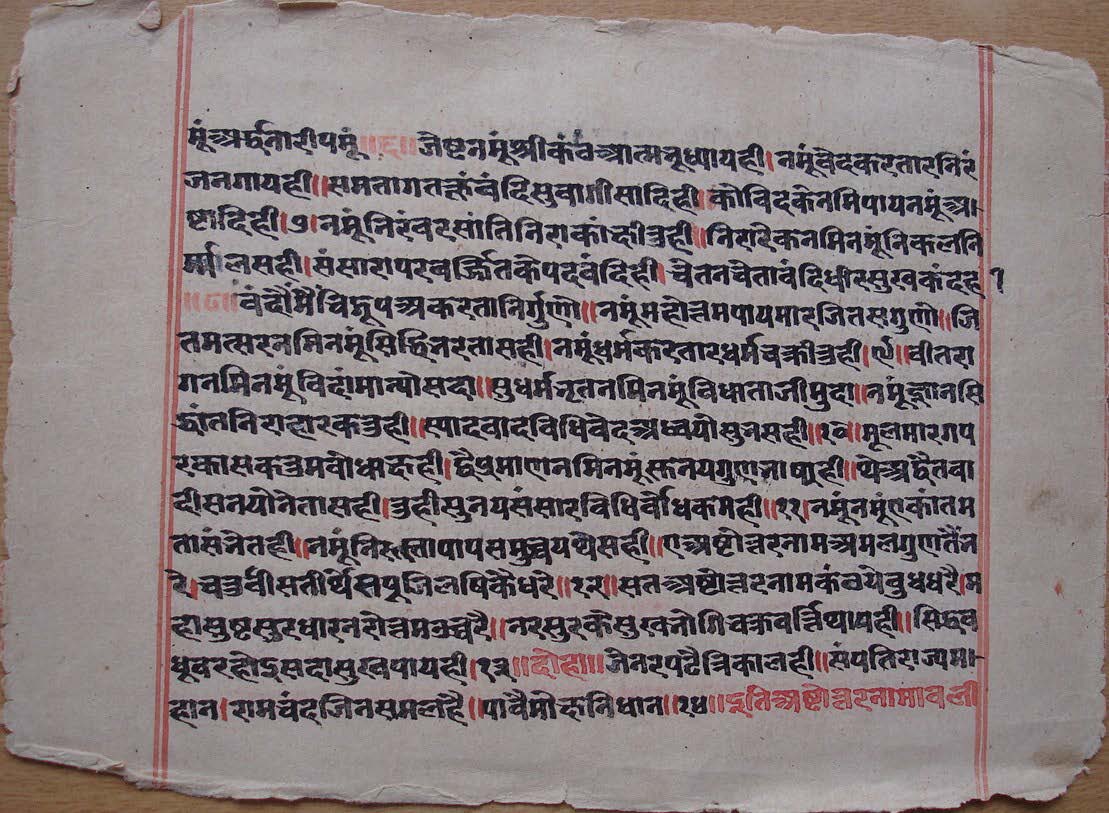 मूं अर्द्धनारीपमूं ॥८॥ जेष्टनमूं श्रीकंव आत्मनूध्यायही । नमूं वेदकरतार निरं
जनगायही ॥ समतागतकूं वंदि सुवागीसादिही । कोविदकेनमिपायनमूं अ
ष्टादिही ।९। नमूं निरंबरसांति निराकांक्षीतुही ॥ निरारेकनमिनमूं निकलनि
र्म्मालसही । संसारापरवर्ज्जितकेपदवंदिही । चेतनचेतावंदिधीरसुखकंदह
॥ वंदौंमैं चिद्रूप अकरतानिर्गुणो ॥ नमूं महोत्तमपायमारजितसगुणो ॥ जि
तमत्सरनमिनमूं सिद्धिनरतासही । नमूं धर्मकरतारधर्मचक्रीतुही । वीतरा
गनमिनमूं विहांमान्योसदा ॥ सुधर्मनृतनमिनमूं विधाताजीमुदा ॥ नमूं ज्ञानसि
द्धांतनिराहारकतुही ॥ स्यादवादविधिवेद अध्वयोसुनसही ॥१०॥ मूलमारगप
रकासकतुमबोधाकही । द्वैप्रमाणनमिनमूं सुनयगुणनाषही ॥ थे अद्वैतवा
दीसनयोनेतासही । तुहीसुनयसंसारविधिर्वोधिकमही ॥११। नमूं नमूं एकांतम
तासंनेतही । नमूं पापसमुच्चयथेसही ॥ ए अष्टोत्तरनाम अमलगुणतैंन
रे । चतुर्वीसतीर्थेसपूजिलषिकैधरे ॥१२॥ सत अष्टोत्तरनामकंठयेबुधधरै । म
हासुष्टसुरधारनरोत्तम ॥ नरसुरकेसुखनोगिचक्रवर्त्तिथायही ॥ सिद्धव
धूवरहोइसदासुखपायही ।१३॥ दोहा ॥ जेनरपटैत्रिकालही ॥ संपतिराज्यमा
हान । रामचंदजिनसमलहै ॥ पावैमोक्षनिधान ॥१४॥ इति अष्टोत्तरनामावली